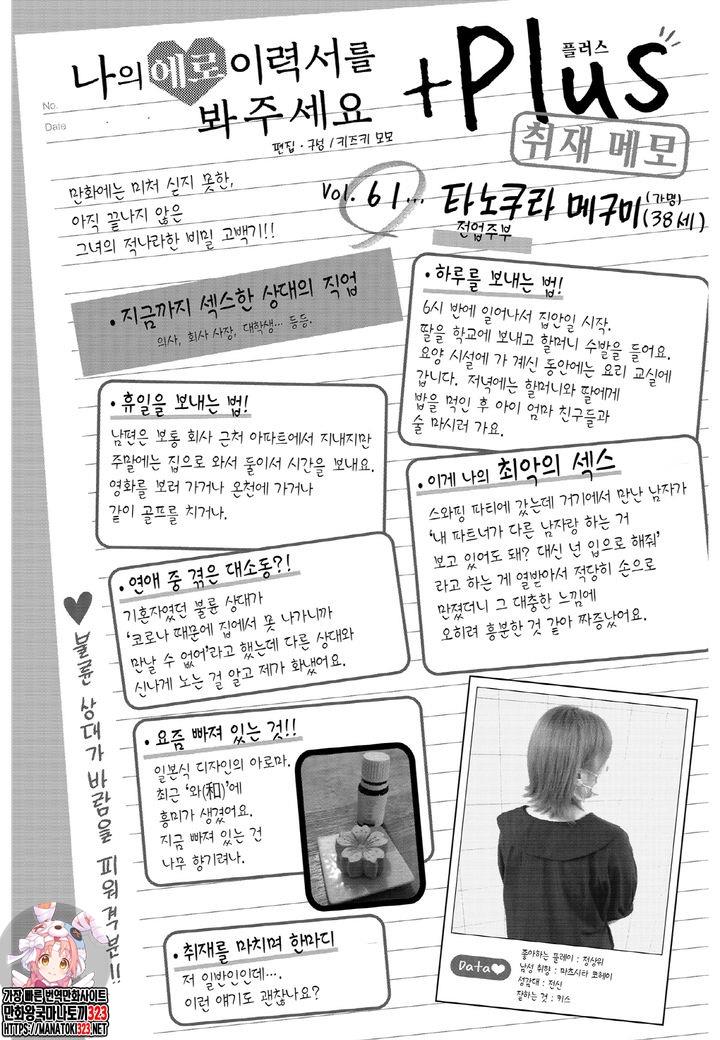 나의 에로 이력서를
봐주세요
+Plus
플러스
취재 메모
No.
Date
편집·구성/키즈키 모모
만화에는 미처 싣지 못한,
아직 끝나지 않은
그녀의 적나라한 비밀 고백기!!
Vol. 61... 타노쿠라 메구미 (가명) (38세)
전업주부
• 지금까지 섹스한 상대의 직업
의사, 회사 사장, 대학생... 등등.
• 하루를 보내는 법!
6시 반에 일어나서 집안일 시작.
딸을 학교에 보내고 할머니 수발을 들어요.
요양 시설에 가 계신 동안에는 요리 교실에
갑니다. 저녁에는 할머니와 딸에게
밥을 먹인 후 아이 엄마 친구들과
술 마시러 가요.
• 휴일을 보내는 법!
남편은 보통 회사 근처 아파트에서 지내지만
주말에는 집으로 와서 둘이서 시간을 보내요.
영화를 보러 가거나 온천에 가거나
같이 골프를 치거나.
• 이게 나의 최악의 섹스
스와핑 파티에 갔는데 거기에서 만난 남자가
'내 파트너가 다른 남자랑 하는 거
보고 있어도 돼? 대신 넌 입으로 해줘'
라고 하는 게 열받아서 적당히 손으로
만졌더니 그 대충한 느낌에
오히려 흥분한 것 같아 짜증났어요.
• 연애 중 겪은 대소동?!
기혼자였던 불륜 상대가
'코로나 때문에 집에서 못 나가니까
만날 수 없어'라고 했는데 다른 상대와
신나게 노는 걸 알고 제가 화냈어요.
♥ 불륜 상대가 바람을 피워 격분!!
• 요즘 빠져 있는 것!!
일본식 디자인의 아로마.
최근 '와(和)'에
흥미가 생겼어요.
지금 빠져 있는 건
나무 향기려나.
• 취재를 마치며 한마디
저 일반인인데....
이런 얘기도 괜찮나요?
Data♥
좋아하는 플레이 : 정상위
남성 취향 : 마츠시타 코헤이
성감대 : 전신
잘하는 것 : 키스
가장 빠른 번역만화사이트
만화왕국마나토끼323
HTTPS://MANATOKI323.NET